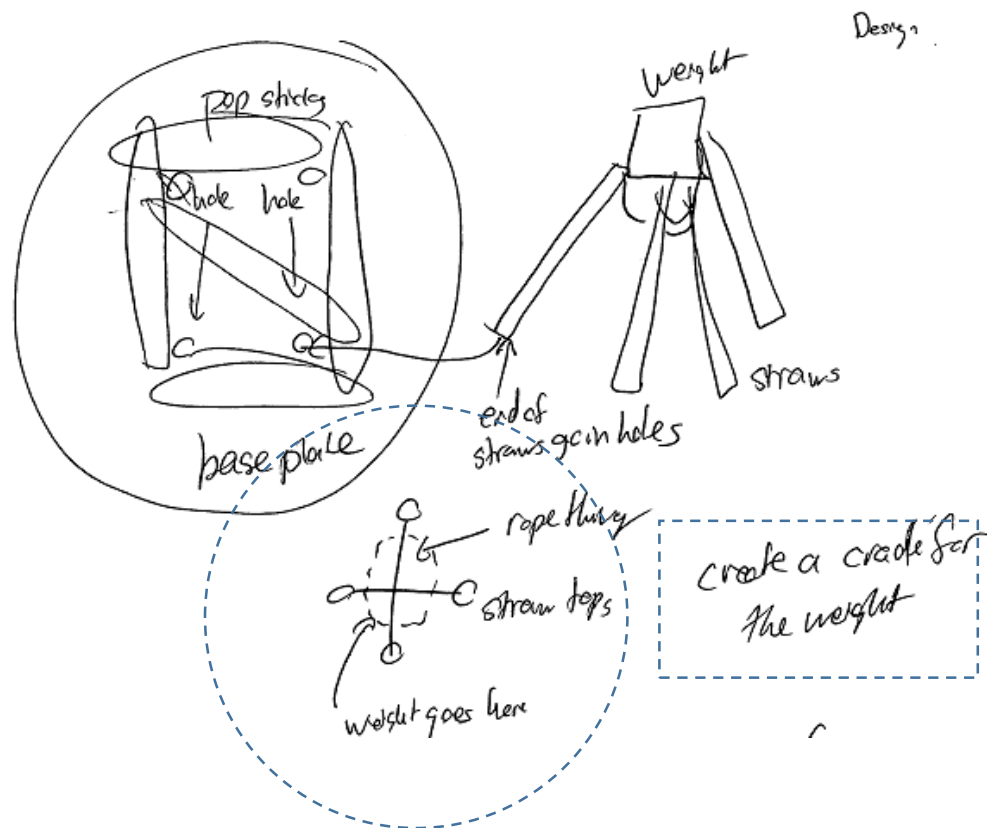 Design.
weight
pop sticks
hole
hole
base plate
end of
straws go in holes
straws
rope thing
straw tops
weight goes here
create a cradle for
the weight